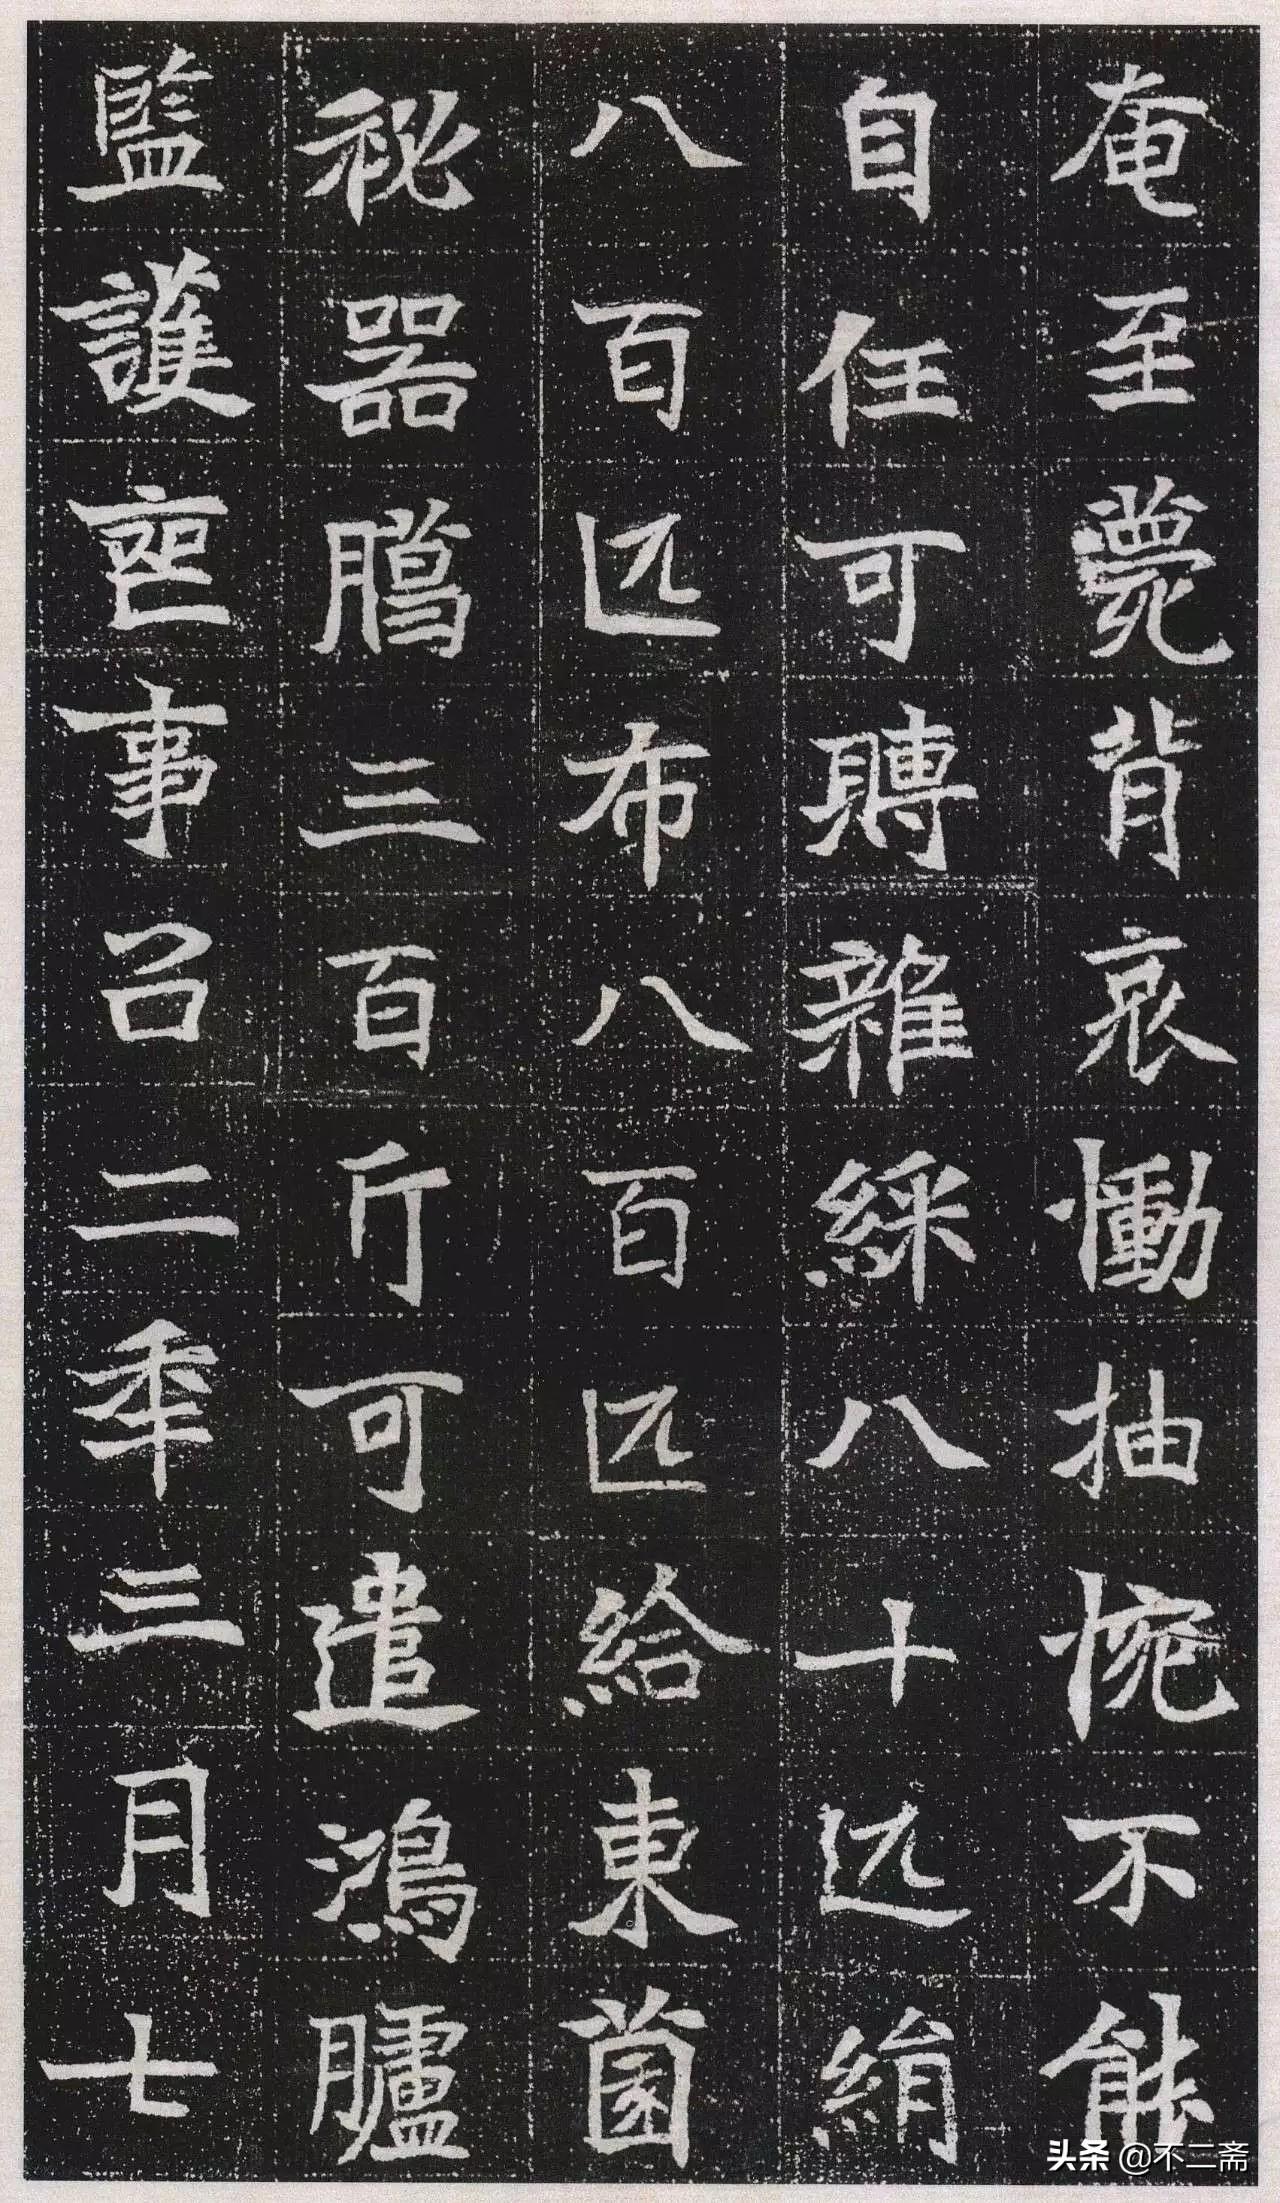 奄至薨背哀慟抽惋不能
自任可賻雜綵八十匹絹
八百匹布八百匹給東薗
祕器臈三百斤可遣鴻臚
監護喪事召二秊三月七
头条 @不二斋